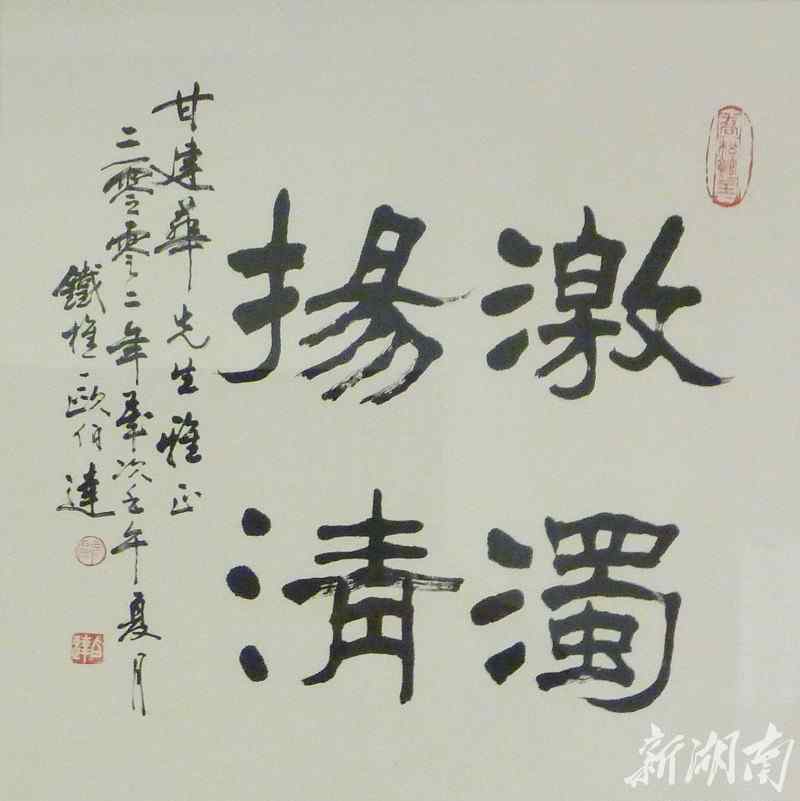 激濁
揚清
甘建華先生雅正
二零零二年歲次壬午夏月
鐵樵歐伯達
新湖南